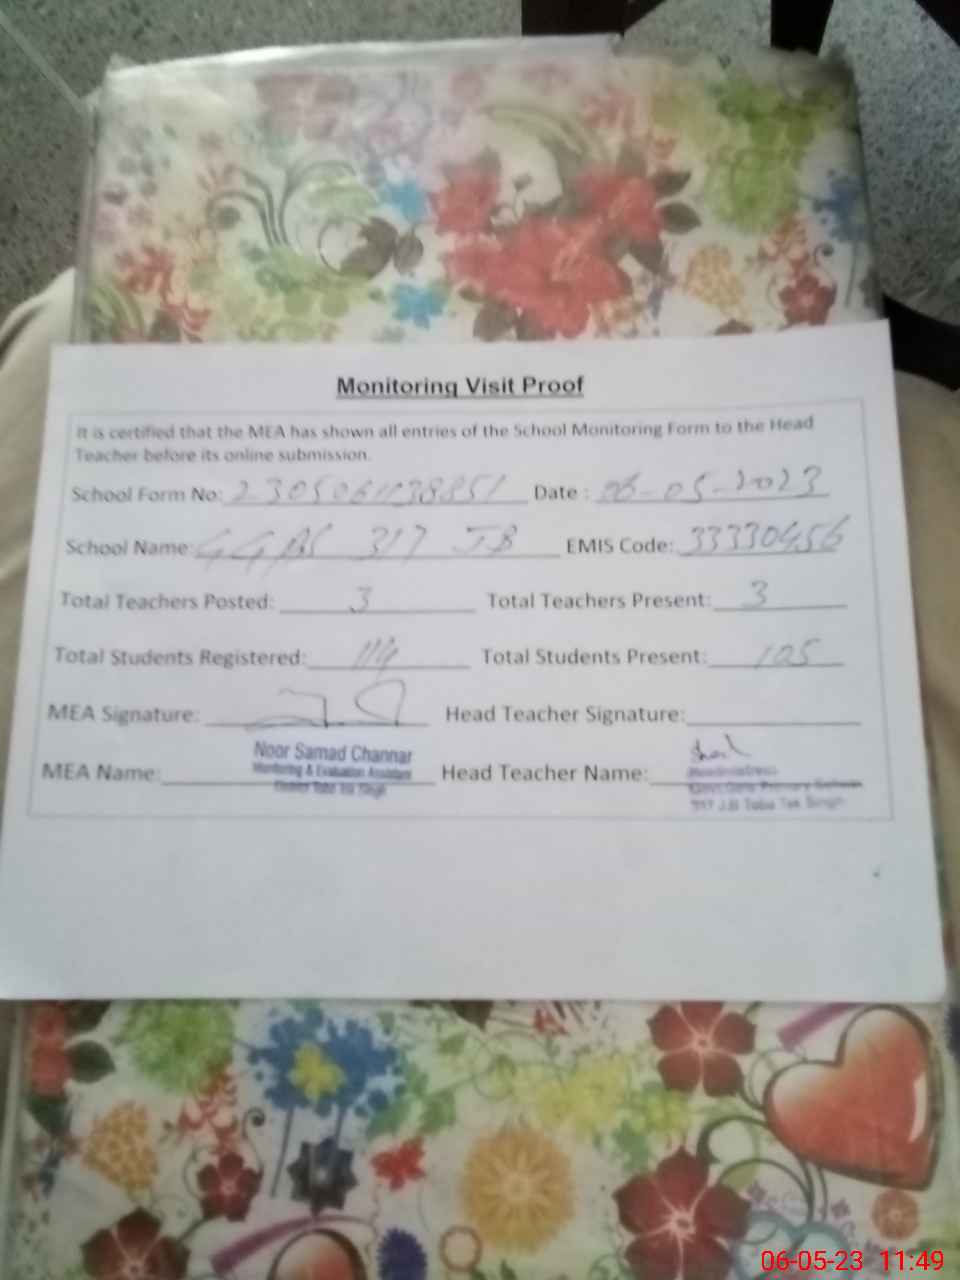 Monitoring Visit Proof
It is certified that the MEA has shown all entries of the School Monitoring Form to the Head
Teacher before its online submission.
School Form No: Date : 06-05-2023
School Name: 317 JB EMIS Code: 33330456
Total Teachers Posted: 3 Total Teachers Present: 3
Total Students Registered: 114 Total Students Present: 105
MEA Signature: Head Teacher Signature:
MEA Name: Noor Samad Channar Head Teacher Name:
Monitoring & Evaluation Assistant
District Toba Tek Singh
Headmistress
Govt. Girls Primary School
317 J.B Toba Tek Singh
06-05-23 11:49